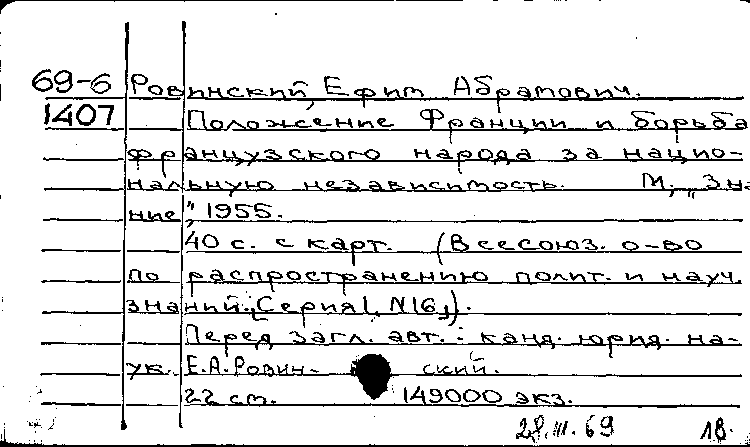 69-6 Ровинский, Ефим Абрамович.
1407 Положение Франции и борьба
французского народа за нацио-
нальную независимость. М., „Зна
ние", 1955.
40 с. с карт. (Всесоюз. о-во
по распространению полит. и науч.
знаний. Серия 1, №16).
Перед загл. авт.: канд. юрид. на-
ук Е.А. Ровин- ский.
22 см. 149000 экз.
28.III.69 18.